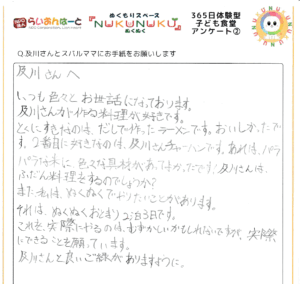 らいおんはーと
ぬくもりスペース
NUKUNUKU
ぬくぬく
365日体験型
子ども食堂
アンケート②
Q.及川さんとスバルママにお手紙をお願いします
及川さんへ
いつも色々とお世話になっております。
及川さんが作る料理が好きです。
とくにすきなのは、だしで作ったラーメンです。おいしかったで
す。2番目に好きなのは、及川さんチャーハンです。あれは、パラ
パラな米に、色々な具材があってよかったです。及川さんは、
ふだん料理をするのでしょうか?
また私は、ぬくぬくでやりたいことがあります。
それは、ぬくぬくおとまり2泊3日です。
これを実際にやるのは、むずかしいかもしれないですが、実際
にできることを願っています。
及川さんと良いご縁がありますように。